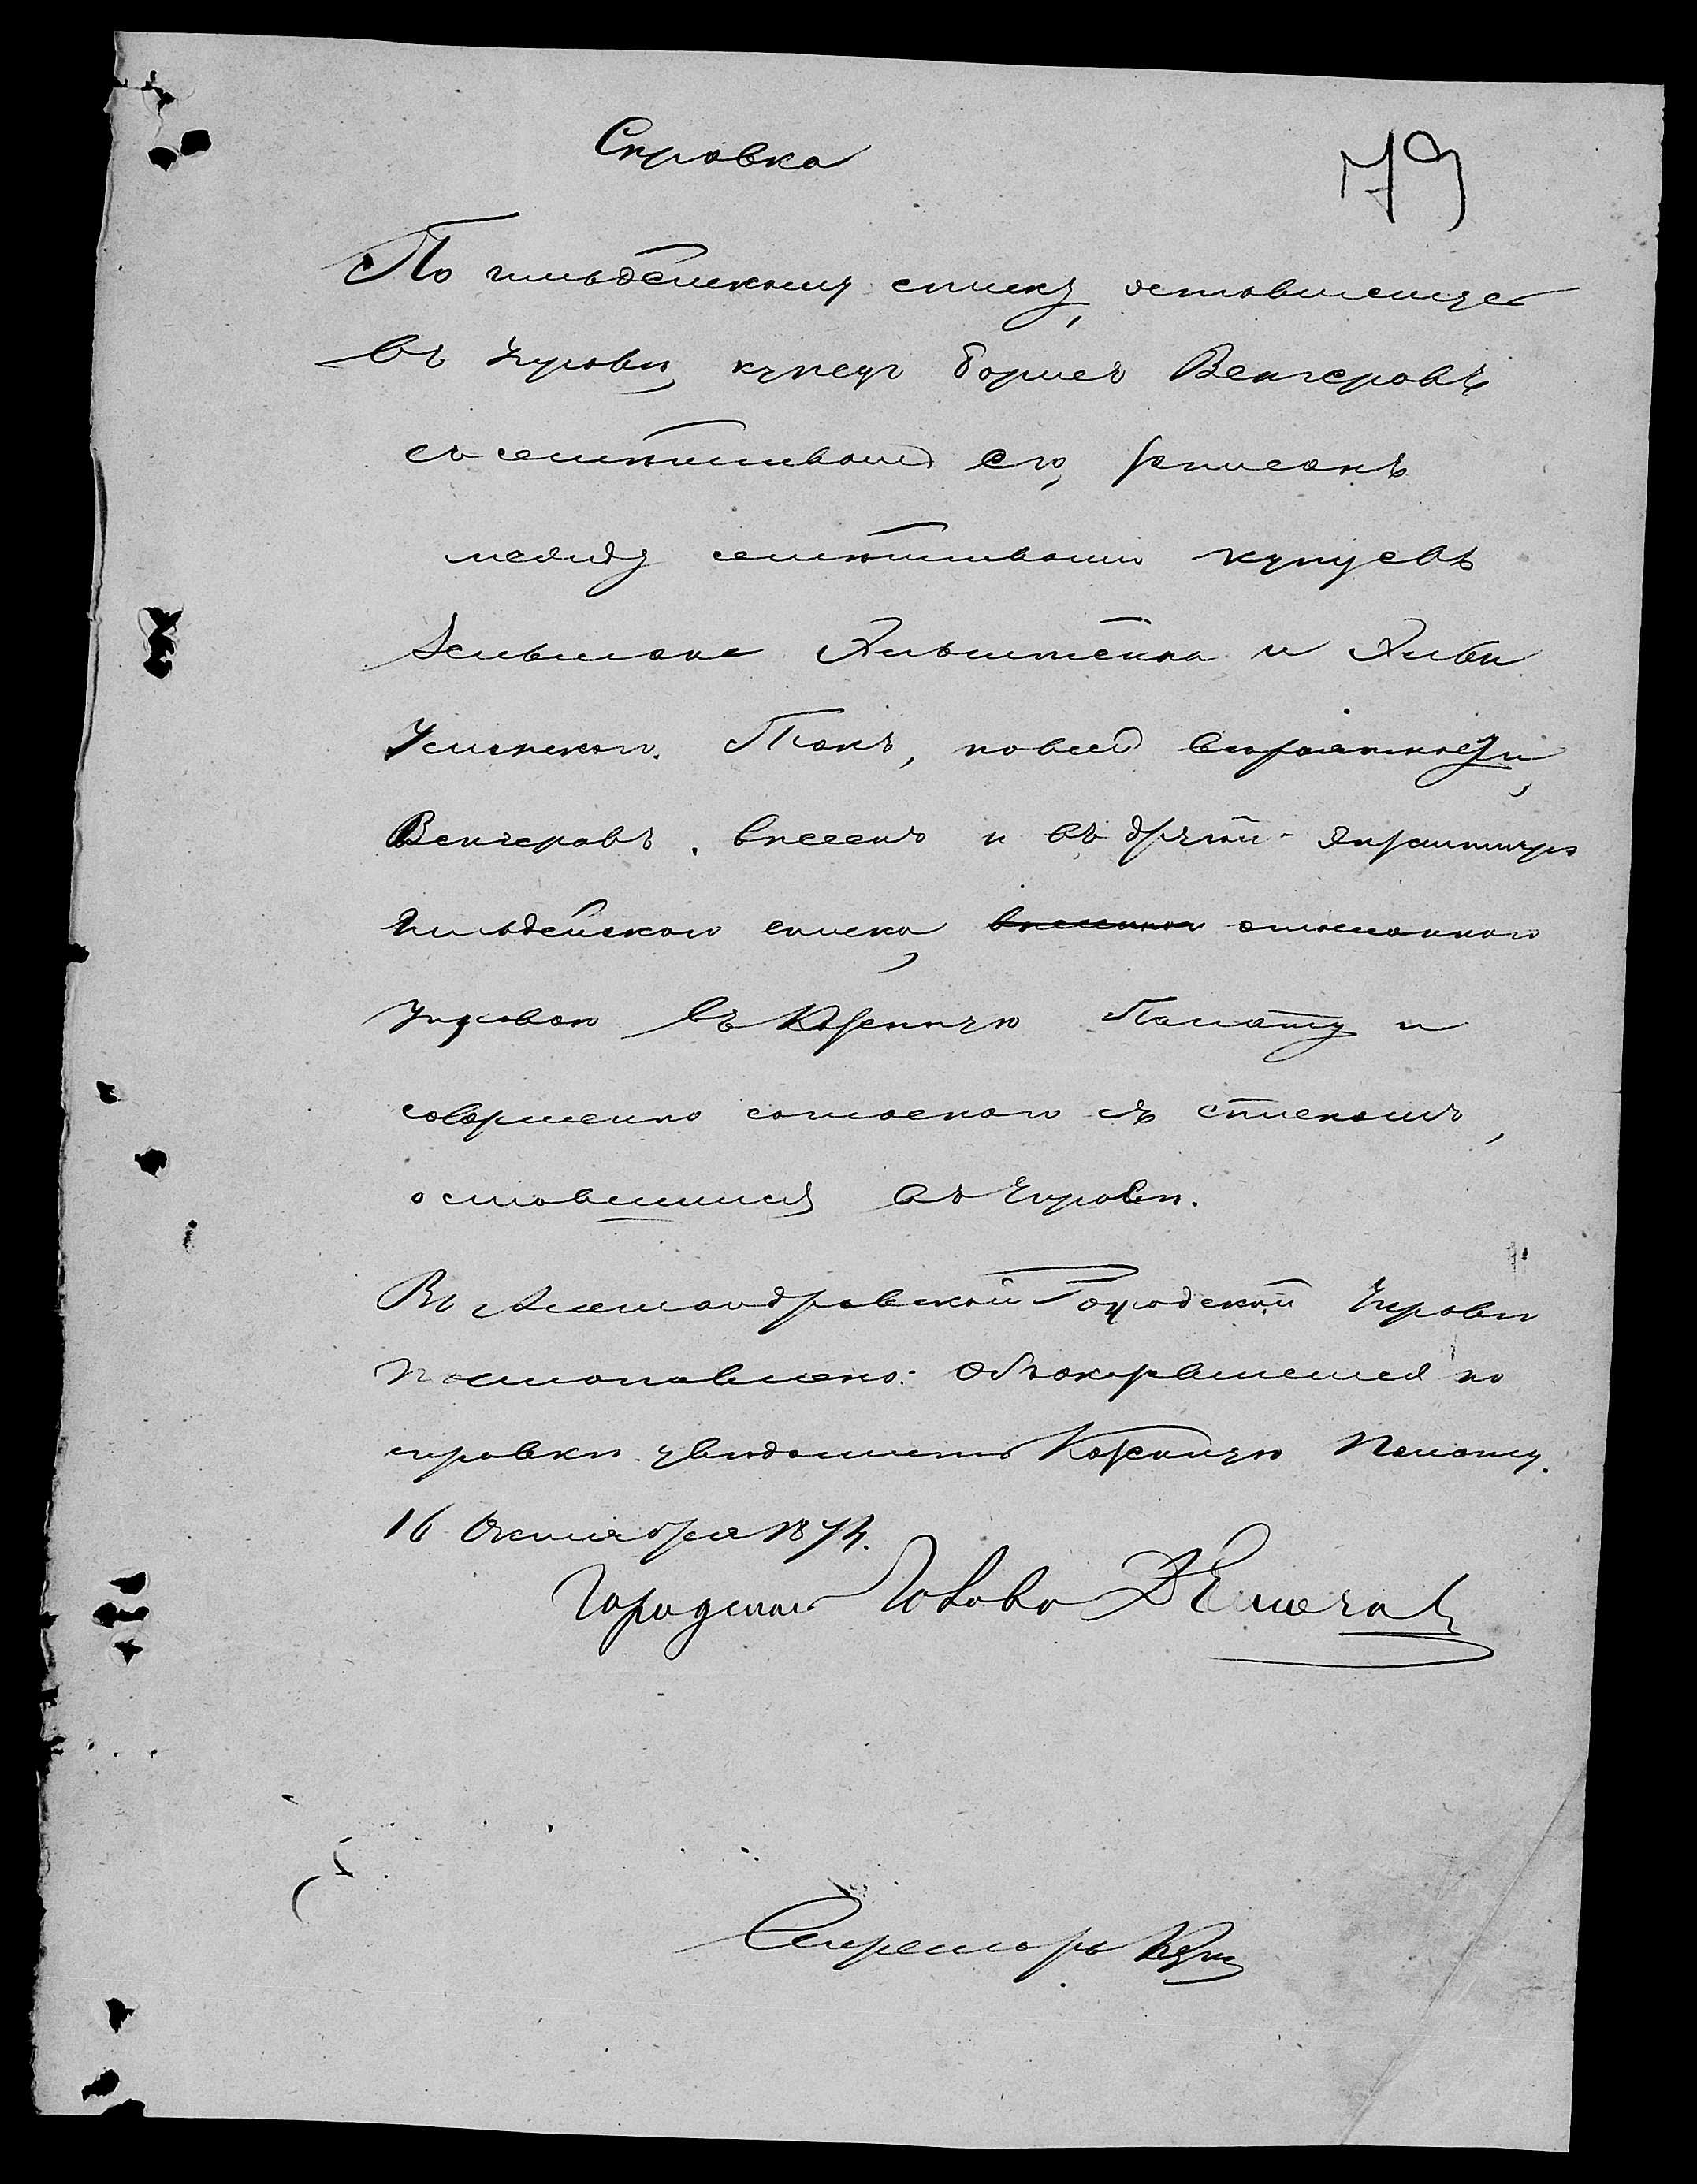 Справка
79
По гильдейскому списку, оставшемуся
въ Управѣ, купецъ Борисъ Венгеровъ
съ семействомъ его, записанъ
между семействами купцевъ
Зельмана Эпштейна и
Успенскаго. Такъ, по всей вѣроятности,
Венгеровъ внесенъ и въ другой экземпляръ
Гильдейскаго списка, отосланнаго
Управою въ Казенную Палату и
совершенно согласнаго съ спискомъ,
оставшимся въ Управѣ.
Въ Александровской Городской Управѣ
постановлено: Объ оказавшемся по
справкѣ увѣдомить Казенную Палату.
16 Октября 1874.
Городской Голова
Секретарь